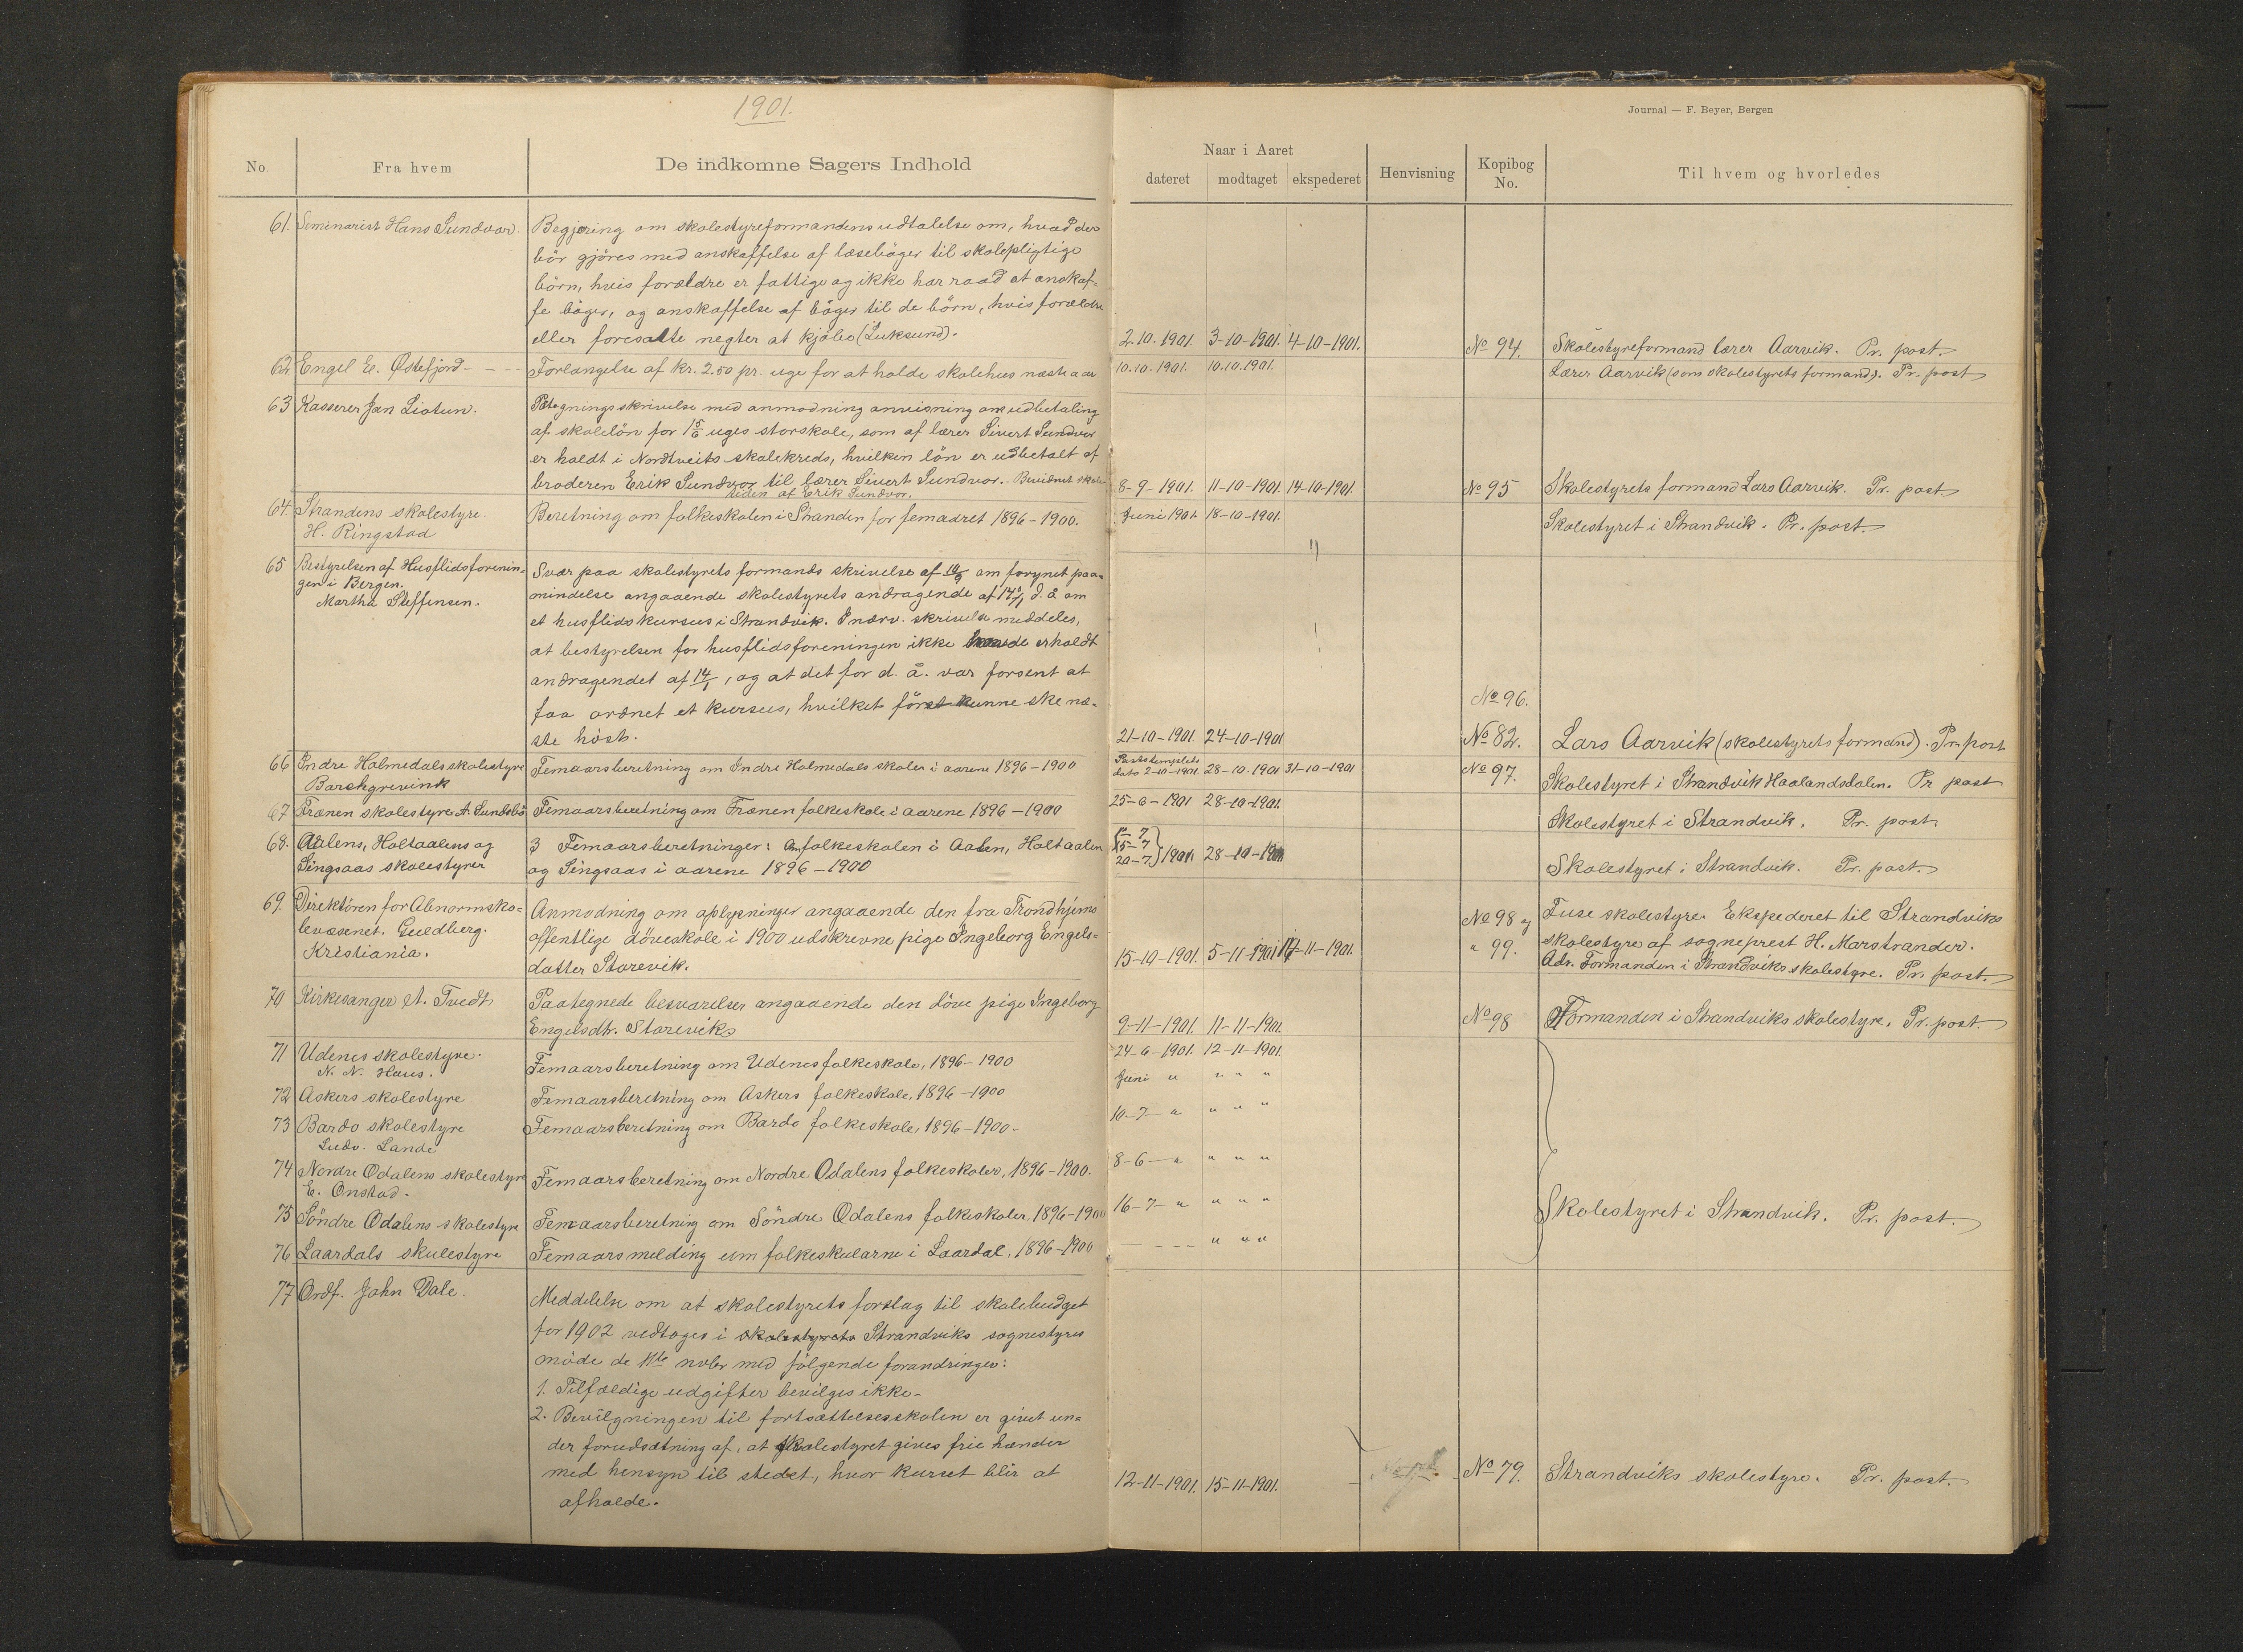 1901.
Journal — F. Beyer, Bergen
No.
Fra hvem
De indkomne Sagers Indhold
Naar i Aaret
dateret
modtaget
ekspederet
Henvisning
Kopibog
No.
Til hvem og hvorledes
61. Seminarist Hans Sundvor.
Begjæring om skolestyreformandens udtalelse om, hvad der
bör gjöres med anskaffelse af læseböger til skolepligtige
börn, hvis forældre er fattige og ikke har raad at anskaf-
fe böger, og anskaffelse af böger til de börn, hvis forældre
eller foresatte negter at kjöbe (Luksund).
2.10.1901. 3-10-1901. 4-10-1901.
No 94. Skolestyreformand lærer Aarvik. Pr. post.
62 Engel E. Østefjord - - -
Forlangelse af kr. 2.50 pr. uge for at holde skolehus næste aar
10.10.1901. 10.10.1901.
Lærer Aarvik (som skolestyrets formand). Pr. post
63 Kasserer Jan Liotun.
Paategningsskrivelse med anmodning anvisning om udbetaling
af skolelön for 1 5/6 uges storskole, som af lærer Sivert Sundvor
er holdt i Nordtveits skolekreds, hvilken lön er udbetalt af
broderen Erik Sundvor til lærer Sivert Sundvor. Bevidnet skole-
tiden af Erik Sundvor.
8-9-1901. 11-10-1901. 14-10-1901.
No 95 Skolestyrets formand Lars Aarvik. Pr. post
64. Strandens skolestyre.
H. Ringstad
Beretning om folkeskolen i Stranden for femaaret 1896-1900.
Juni 1901. 18-10-1901.
Skolestyret i Strandvik. Pr. post.
65 Bestyrelsen af Husflidsforenin-
gen i Bergen.
Martha Steffensen.
Svar paa skolestyrets formands skrivelse af 10/9 om fornyet paa-
mindelse angaaende skolestyrets andragende af 14/1 d. å om
et husflidskursus i Strandvik. I nærv. skrivelse meddeles,
at bestyrelsen for husflidsforeningen ikke havde erholdt
andragendet af 14/1, og at det for d. å. var forsent at
faa ordnet et kursus, hvilket först kunne ske næ-
ste höst.
21-10-1901. 24-10-1901
No 96.
No 82. Lars Aarvik (skolestyrets formand). Pr. post
66 Indre Holmedals skolestyre
Barchgrevink
Femaarsberetning om Indre Holmedals skoler i aarene 1896-1900
Poststemplets
dato 2-10-1901. 28-10-1901 31-10-1901
No 97. Skolestyret i Strandvik Haalandsdalen. Pr post
67 Frænen skolestyre A. Sundsbö
Femaarsberetning om Frænen folkeskole i aarene 1896-1900
25-6-1901 28-10-1901.
Skolestyret i Strandvik. Pr. post.
68. Aalens, Holtaalens og
Singsaas skolestyrer
3 Femaarsberetninger: Om folkeskolen i Aalen, Holtaalen
og Singsaas i aarene 1896-1900
15-7
20-7 } 1901. 28-10-1901
Skolestyret i Strandvik. Pr. post.
69. Direktören for Abnormsko-
levæsenet. Guldberg.
Kristiania.
Anmodning om oplysninger angaaende den fra Trondhjems
offentlige döveskole i 1900 udskrevne pige Ingeborg Engels-
datter Storevik.
15-10-1901. 5-11-1901 14-11-1901.
No 98 og
" 99.
Fuse skolestyre. Ekspederet til Strandviks
skolestyre af sogneprest H. Marstrander.
Adr. Formanden i Strandviks skolestyre. Pr. post.
70 Kirkesanger A. Tvedt
Paategnede besvarelser angaaende den döve pige Ingeborg
Engelsdtr. Storevik
9-11-1901. 11-11-1901.
No 98 Formanden i Strandviks skolestyre. Pr. post.
71 Udenes skolestyre.
N. N. Haus.
Femaarsberetning om Udenes folkeskole, 1896-1900
24-6-1901. 12-11-1901.
72 Askers skolestyre
Femaarsberetning om Askers folkeskole, 1896-1900
Juni " " " "
73 Bardo skolestyre
Ludv. Lande
Femaarsberetning om Bardo folkeskole, 1896-1900.
10-7- " " " "
74 Nordre Odalens skolestyre
E. Onstad.
Femaarsberetning om Nordre Odalens folkeskoler, 1896-1900.
8-6- " " " "
75 Söndre Odalens skolestyre
Femaarsberetning om Söndre Odalens folkeskoler, 1896-1900
16-7- " " " "
Skolestyret i Strandvik. Pr. post.
76 Laardals skulestyre
Femaarsmelding um folkeskularne i Laardal, 1896-1900
- - - - " " "
77 Ordf. John Dale.
Meddelelse om at skolestyrets forslag til skolebudget
for 1902 vedtoges i skolestyrets Strandviks sognestyres
möde de 11te novbr med fölgende forandringer:
1. Tilfældige udgifter bevilges ikke.
2. Bevilgningen til fortsættelsesskolen er givet un-
der forudsætning af, at skolestyret gives frie hænder
med hensyn til stedet, hvor kurset blir at
afholde.
12-11-1901. 15-11-1901.
No 79. Strandviks skolestyre. Pr. post.